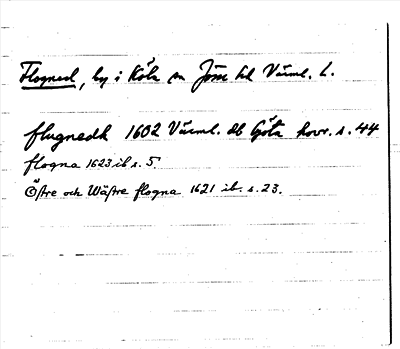 Flogned, by i Köla sn Jösse hd Värml. L.
flugnedh 1602 Värml. db Göta hovr. s. 44
flogna 1623 ib s. 5.
Östre och Wästre flogna 1621 ib. s. 23.